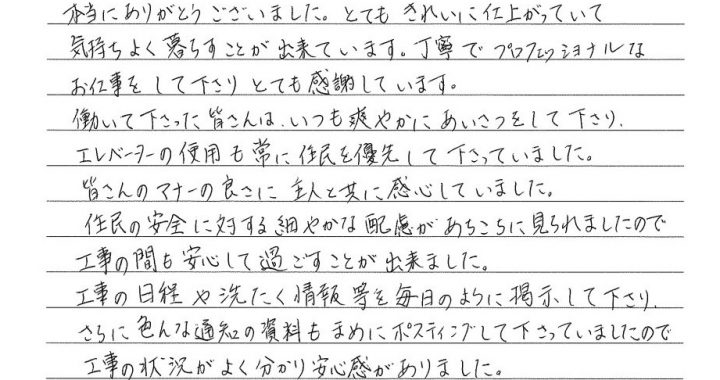 本当にありがとうございました。とても きれいに仕上がっていて
気持ちよく暮らすことが出来ています。丁寧で プロフェッショナルな
お仕事を して下さり とても感謝しています。
働いて下さった皆さんは、いつも爽やかに あいさつをして下さり、
エレベーターの使用も常に住民を優先して下さっていました。
皆さんのマナーの良さに 主人と共に感心していました。
住民の安全に対する細やかな配慮があちこちに見られましたので
工事の間も安心して過ごすことが出来ました。
工事の日程や洗たく情報等を毎日のように掲示して下さり、
さらに色んな通知の資料もまめにポスティングして下さっていましたので
工事の状況がよく分かり安心感がありました。